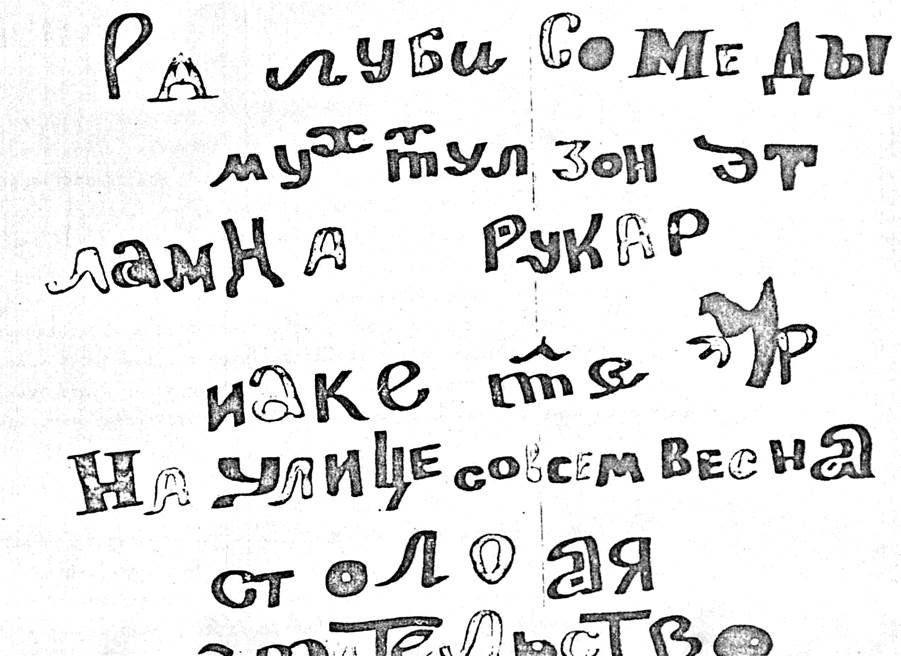 РА ЛУБИ СОМЕДЫ
МУХ ТУЛ ЗОН ЭТ
ЛАМНА РУКАР
ИАКЕ ТЯ
НА УЛИЦЕ СОВСЕМ ВЕСНА
СТ ОЛ О АЯ